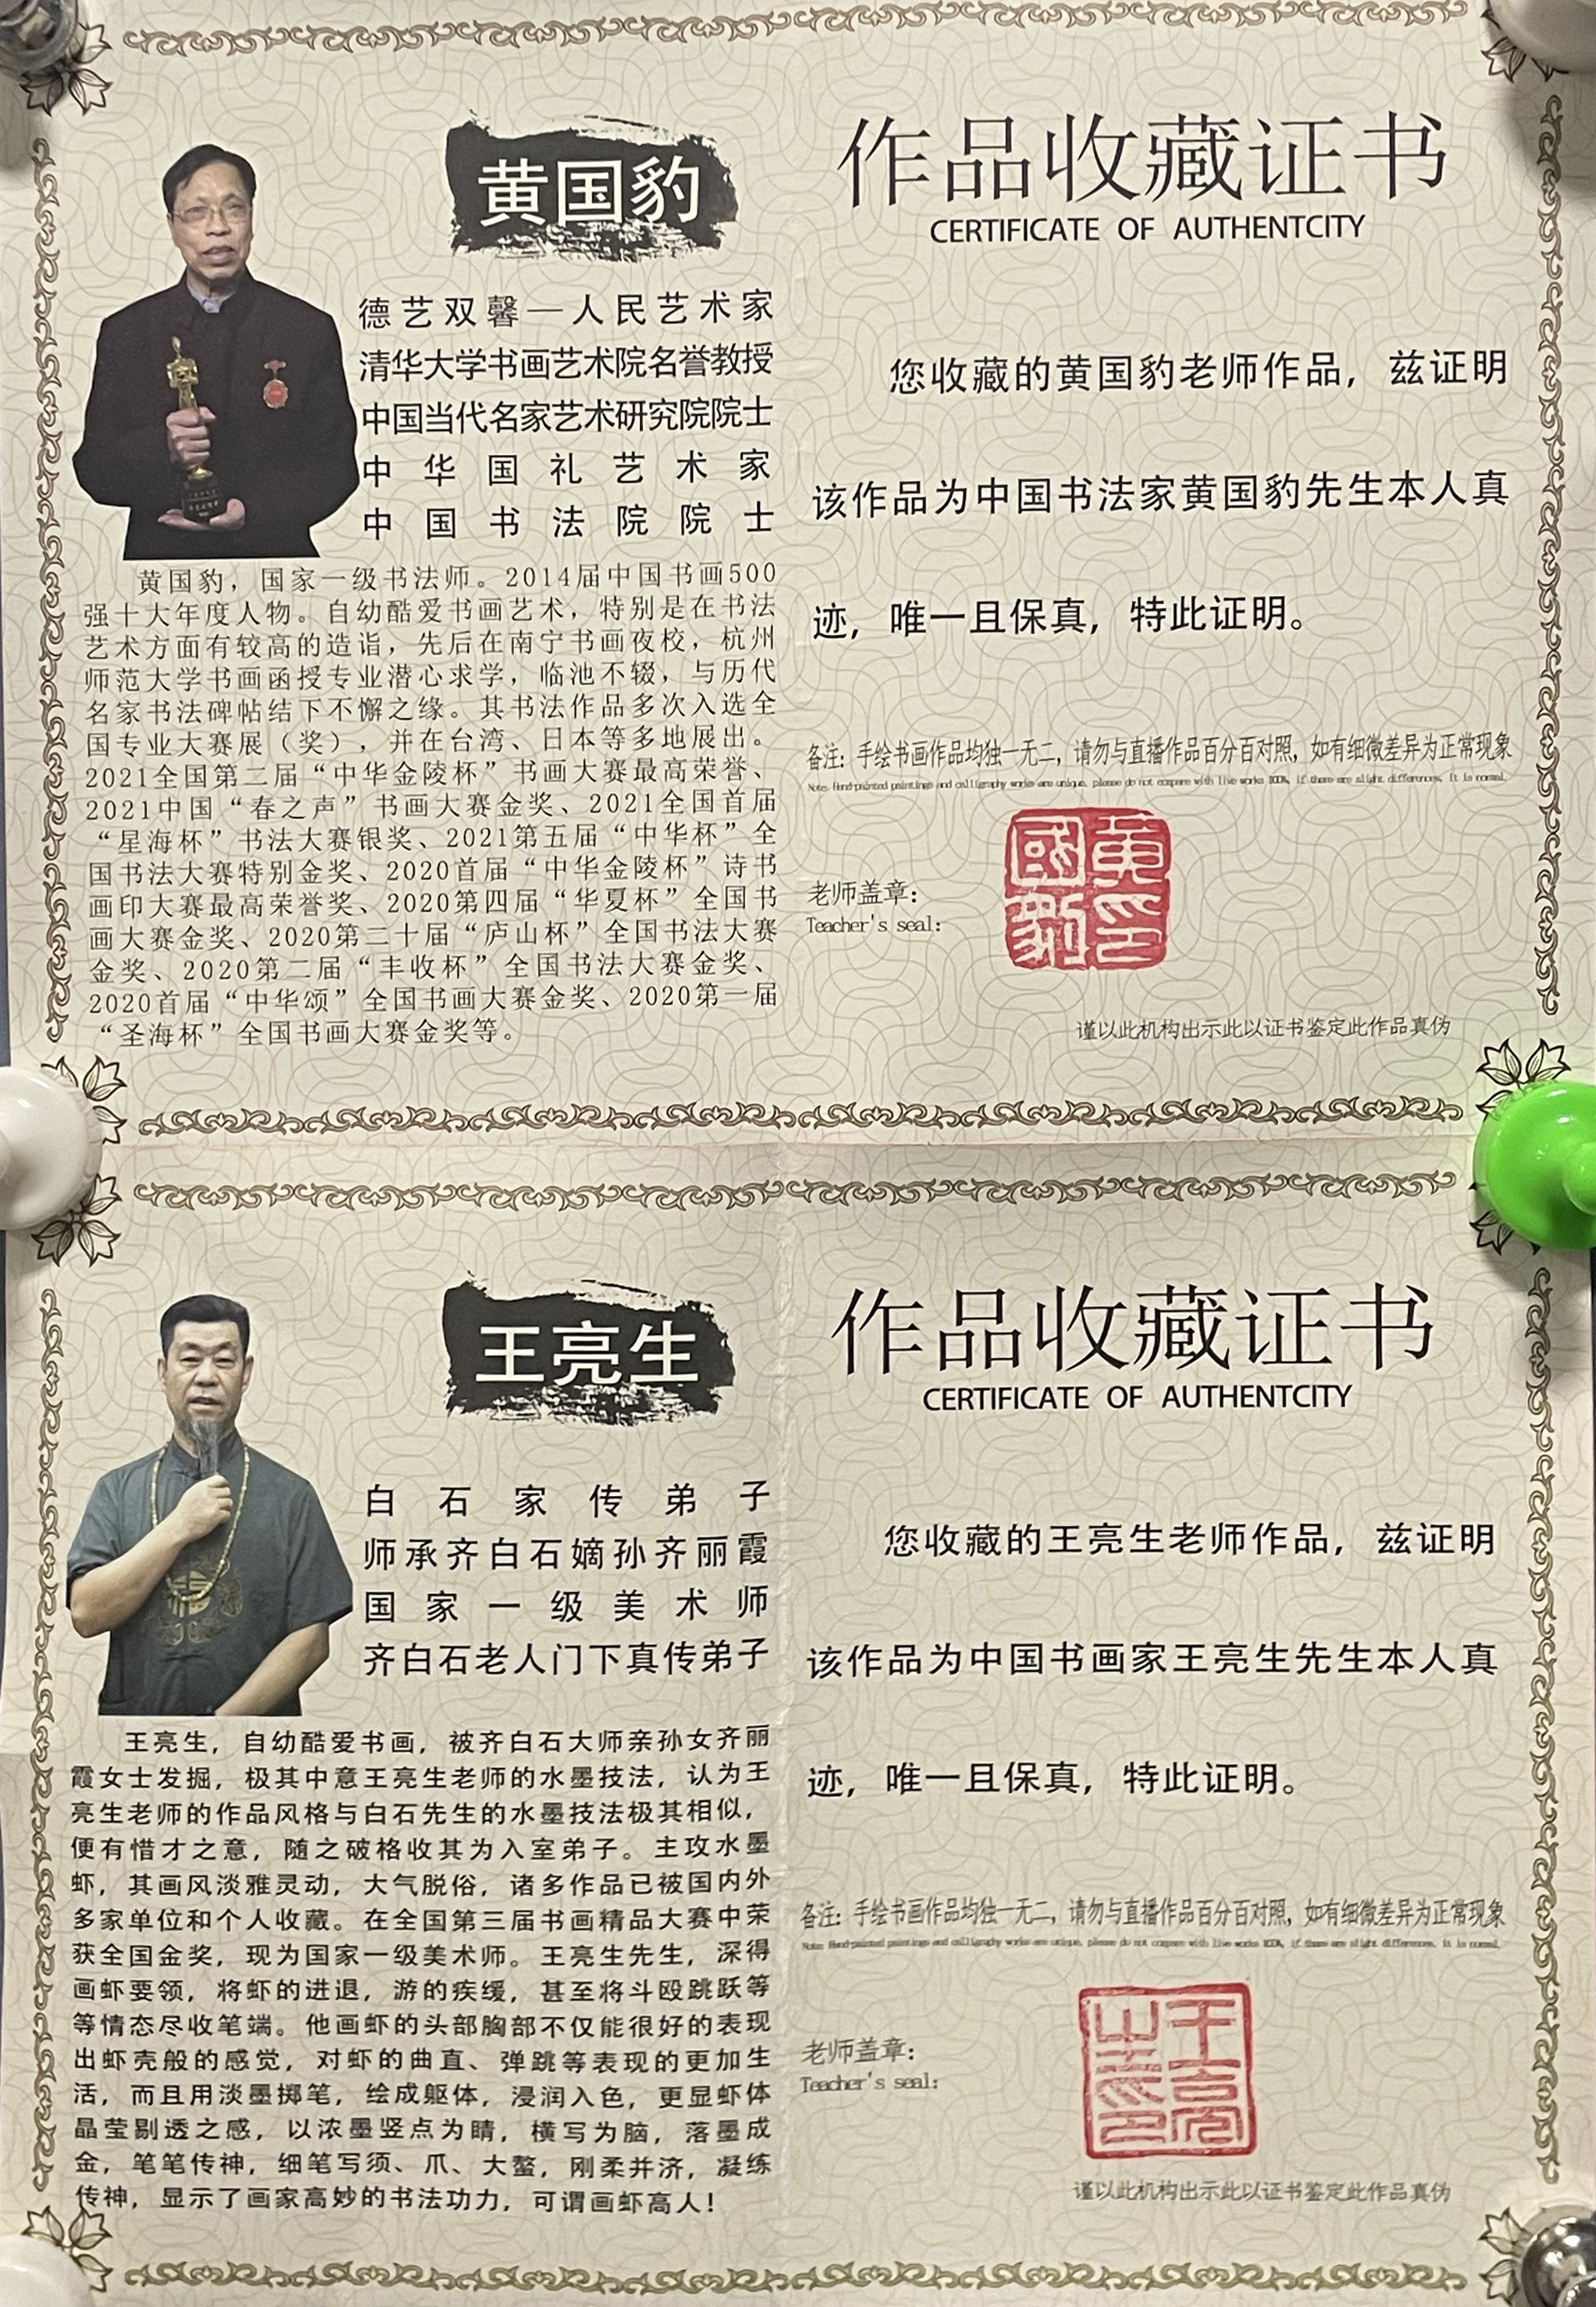 黄国豹
德艺双馨—人民艺术家
清华大学书画艺术院名誉教授
中国当代名家艺术研究院院士
中华国礼艺术家
中国书法院院士
黄国豹，国家一级书法师。2014届中国书画500
强十大年度人物。自幼酷爱书画艺术，特别是在书法
艺术方面有较高的造诣，先后在南宁书画夜校，杭州
师范大学书画函授专业潜心求学，临池不辍，与历代
名家书法碑帖结下不懈之缘。其书法作品多次入选全
国专业大赛展（奖），并在台湾、日本等多地展出。
2021全国第二届“中华金陵杯”书画大赛最高荣誉、
2021中国“春之声”书画大赛金奖、2021全国首届
“星海杯”书法大赛银奖、2021第五届“中华杯”全
国书法大赛特别金奖、2020首届“中华金陵杯”诗书
画印大赛最高荣誉奖、2020第四届“华夏杯”全国书
画大赛金奖、2020第二十届“庐山杯”全国书法大赛
金奖、2020第二届“丰收杯”全国书法大赛金奖、
2020首届“中华颂”全国书画大赛金奖、2020第一届
“圣海杯”全国书画大赛金奖等。
作品收藏证书
CERTIFICATE OF AUTHENTCITY
您收藏的黄国豹老师作品，兹证明
该作品为中国书法家黄国豹先生本人真
迹，唯一且保真，特此证明。
备注：手绘书画作品均独一无二，请勿与直播作品百分百对照，如有细微差异为正常现象
Note: Hand-painted paintings and calligraphy works are unique, please do not compare with live works 100%, if there are slight differences, it is normal.
老师盖章：
Teacher's seal:
黄印國豹
谨以此机构出示此以证书鉴定此作品真伪
王亮生
白石家传弟子
师承齐白石嫡孙齐丽霞
国家一级美术师
齐白石老人门下真传弟子
王亮生，自幼酷爱书画，被齐白石大师亲孙女齐丽
霞女士发掘，极其中意王亮生老师的水墨技法，认为王
亮生老师的作品风格与白石先生的水墨技法极其相似，
便有惜才之意，随之破格收其为入室弟子。主攻水墨
虾，其画风淡雅灵动，大气脱俗，诸多作品已被国内外
多家单位和个人收藏。在全国第三届书画精品大赛中荣
获全国金奖，现为国家一级美术师。王亮生先生，深得
画虾要领，将虾的进退，游的疾缓，甚至将斗殴跳跃等
等情态尽收笔端。他画虾的头部胸部不仅能很好的表现
出虾壳般的感觉，对虾的曲直、弹跳等表现的更加生
活，而且用淡墨掷笔，绘成躯体，浸润入色，更显虾体
晶莹剔透之感，以浓墨竖点为睛，横写为脑，落墨成
金，笔笔传神，细笔写须、爪、大螯，刚柔并济，凝练
传神，显示了画家高妙的书法功力，可谓画虾高人！
作品收藏证书
CERTIFICATE OF AUTHENTCITY
您收藏的王亮生老师作品，兹证明
该作品为中国书画家王亮生先生本人真
迹，唯一且保真，特此证明。
备注：手绘书画作品均独一无二，请勿与直播作品百分百对照，如有细微差异为正常现象
Note: Hand-painted paintings and calligraphy works are unique, please do not compare with live works 100%, if there are slight differences, it is normal.
老师盖章：
Teacher's seal:
谨以此机构出示此以证书鉴定此作品真伪